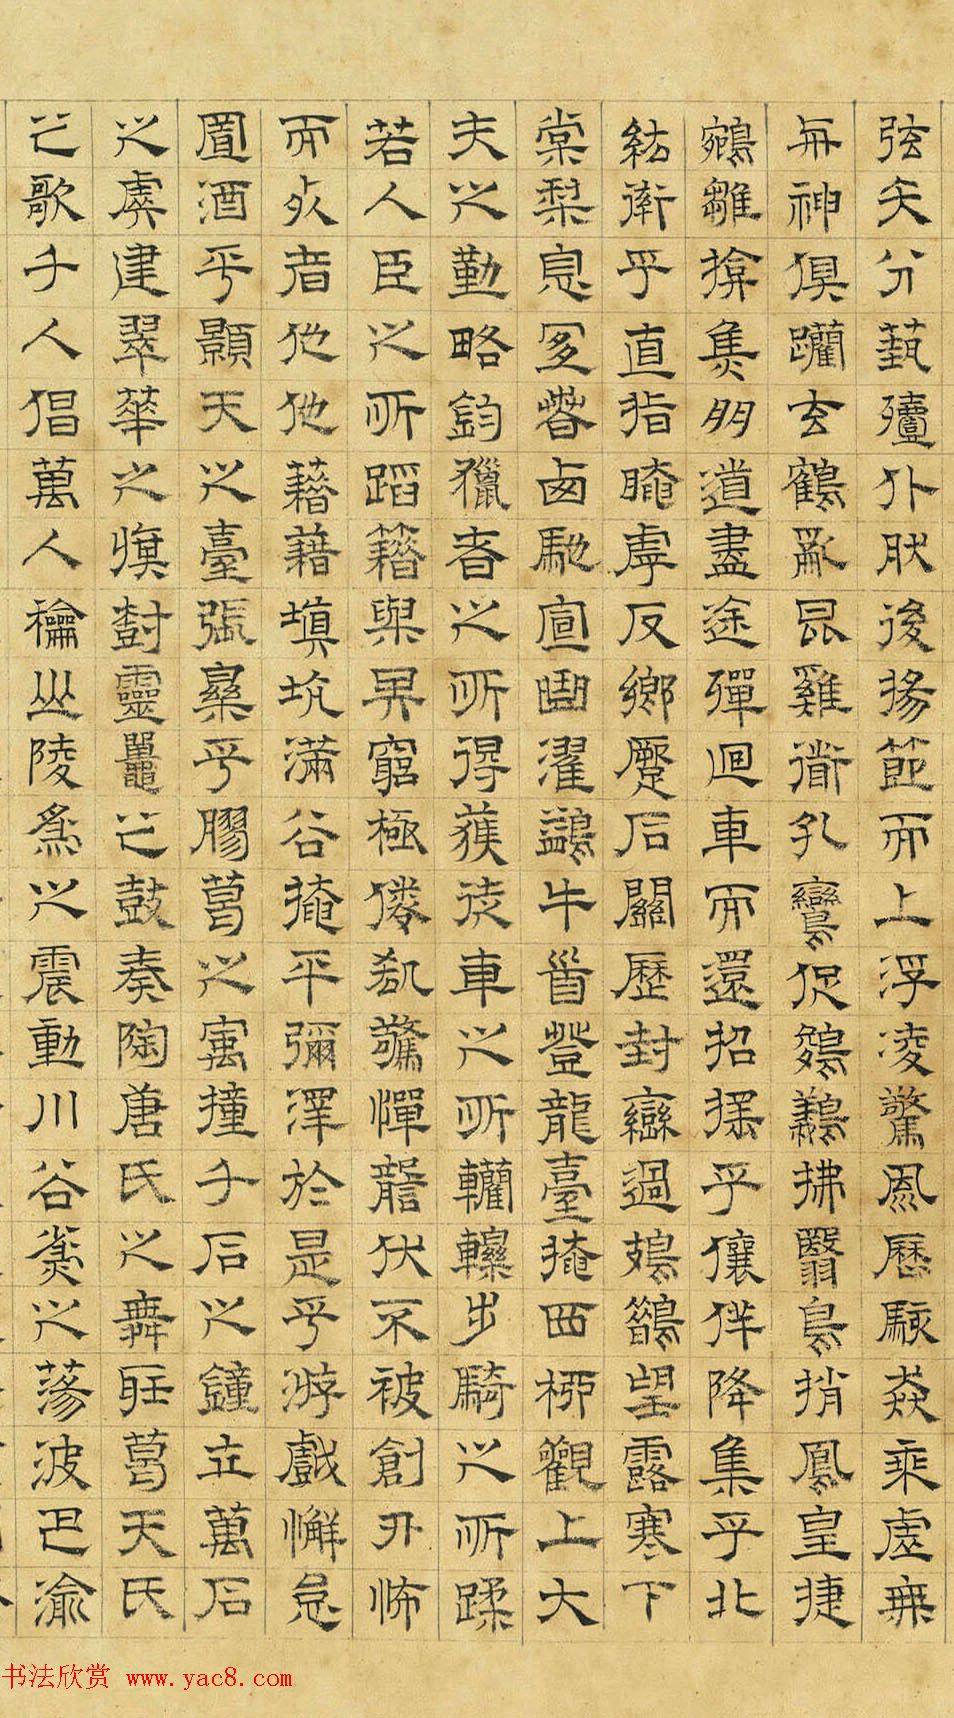 弦矢分蓺殪仆肰後揚節而上浮凌驚風歷駭猋乘虛無
與神俱躪玄鶴亂昆雞遒孔鸞促鵔鸃拂翳鳥捎鳳皇捷
鵷雛揜焦朋道盡途殫迴車而還招搖乎儴佯降集乎北
紘衛乎直指晻虖反鄉蹷石關歷封巒過鳷鵲望露寒下
棠梨息宜春西馳宣曲濯鷁牛首登龍臺掩西柳觀上大
夫之勤略鈞獵者之所得獲徒車之所轥轢步騎之所蹂
若人臣之所蹈籍與其窮極倦谻驚憚讋伏不被創刃怖
而死者他他籍藉填坑滿谷掩平彌澤於是乎游戲懈怠
置酒乎顥天之臺張樂乎膠葛之寓撞千石之鐘立萬石
之虡建翠華之旗樹靈鼉之鼓奏陶唐氏之舞聽葛天氏
之歌千人倡萬人龢山陵為之震動川谷為之蕩波巴渝
书法欣赏 www.yac8.com